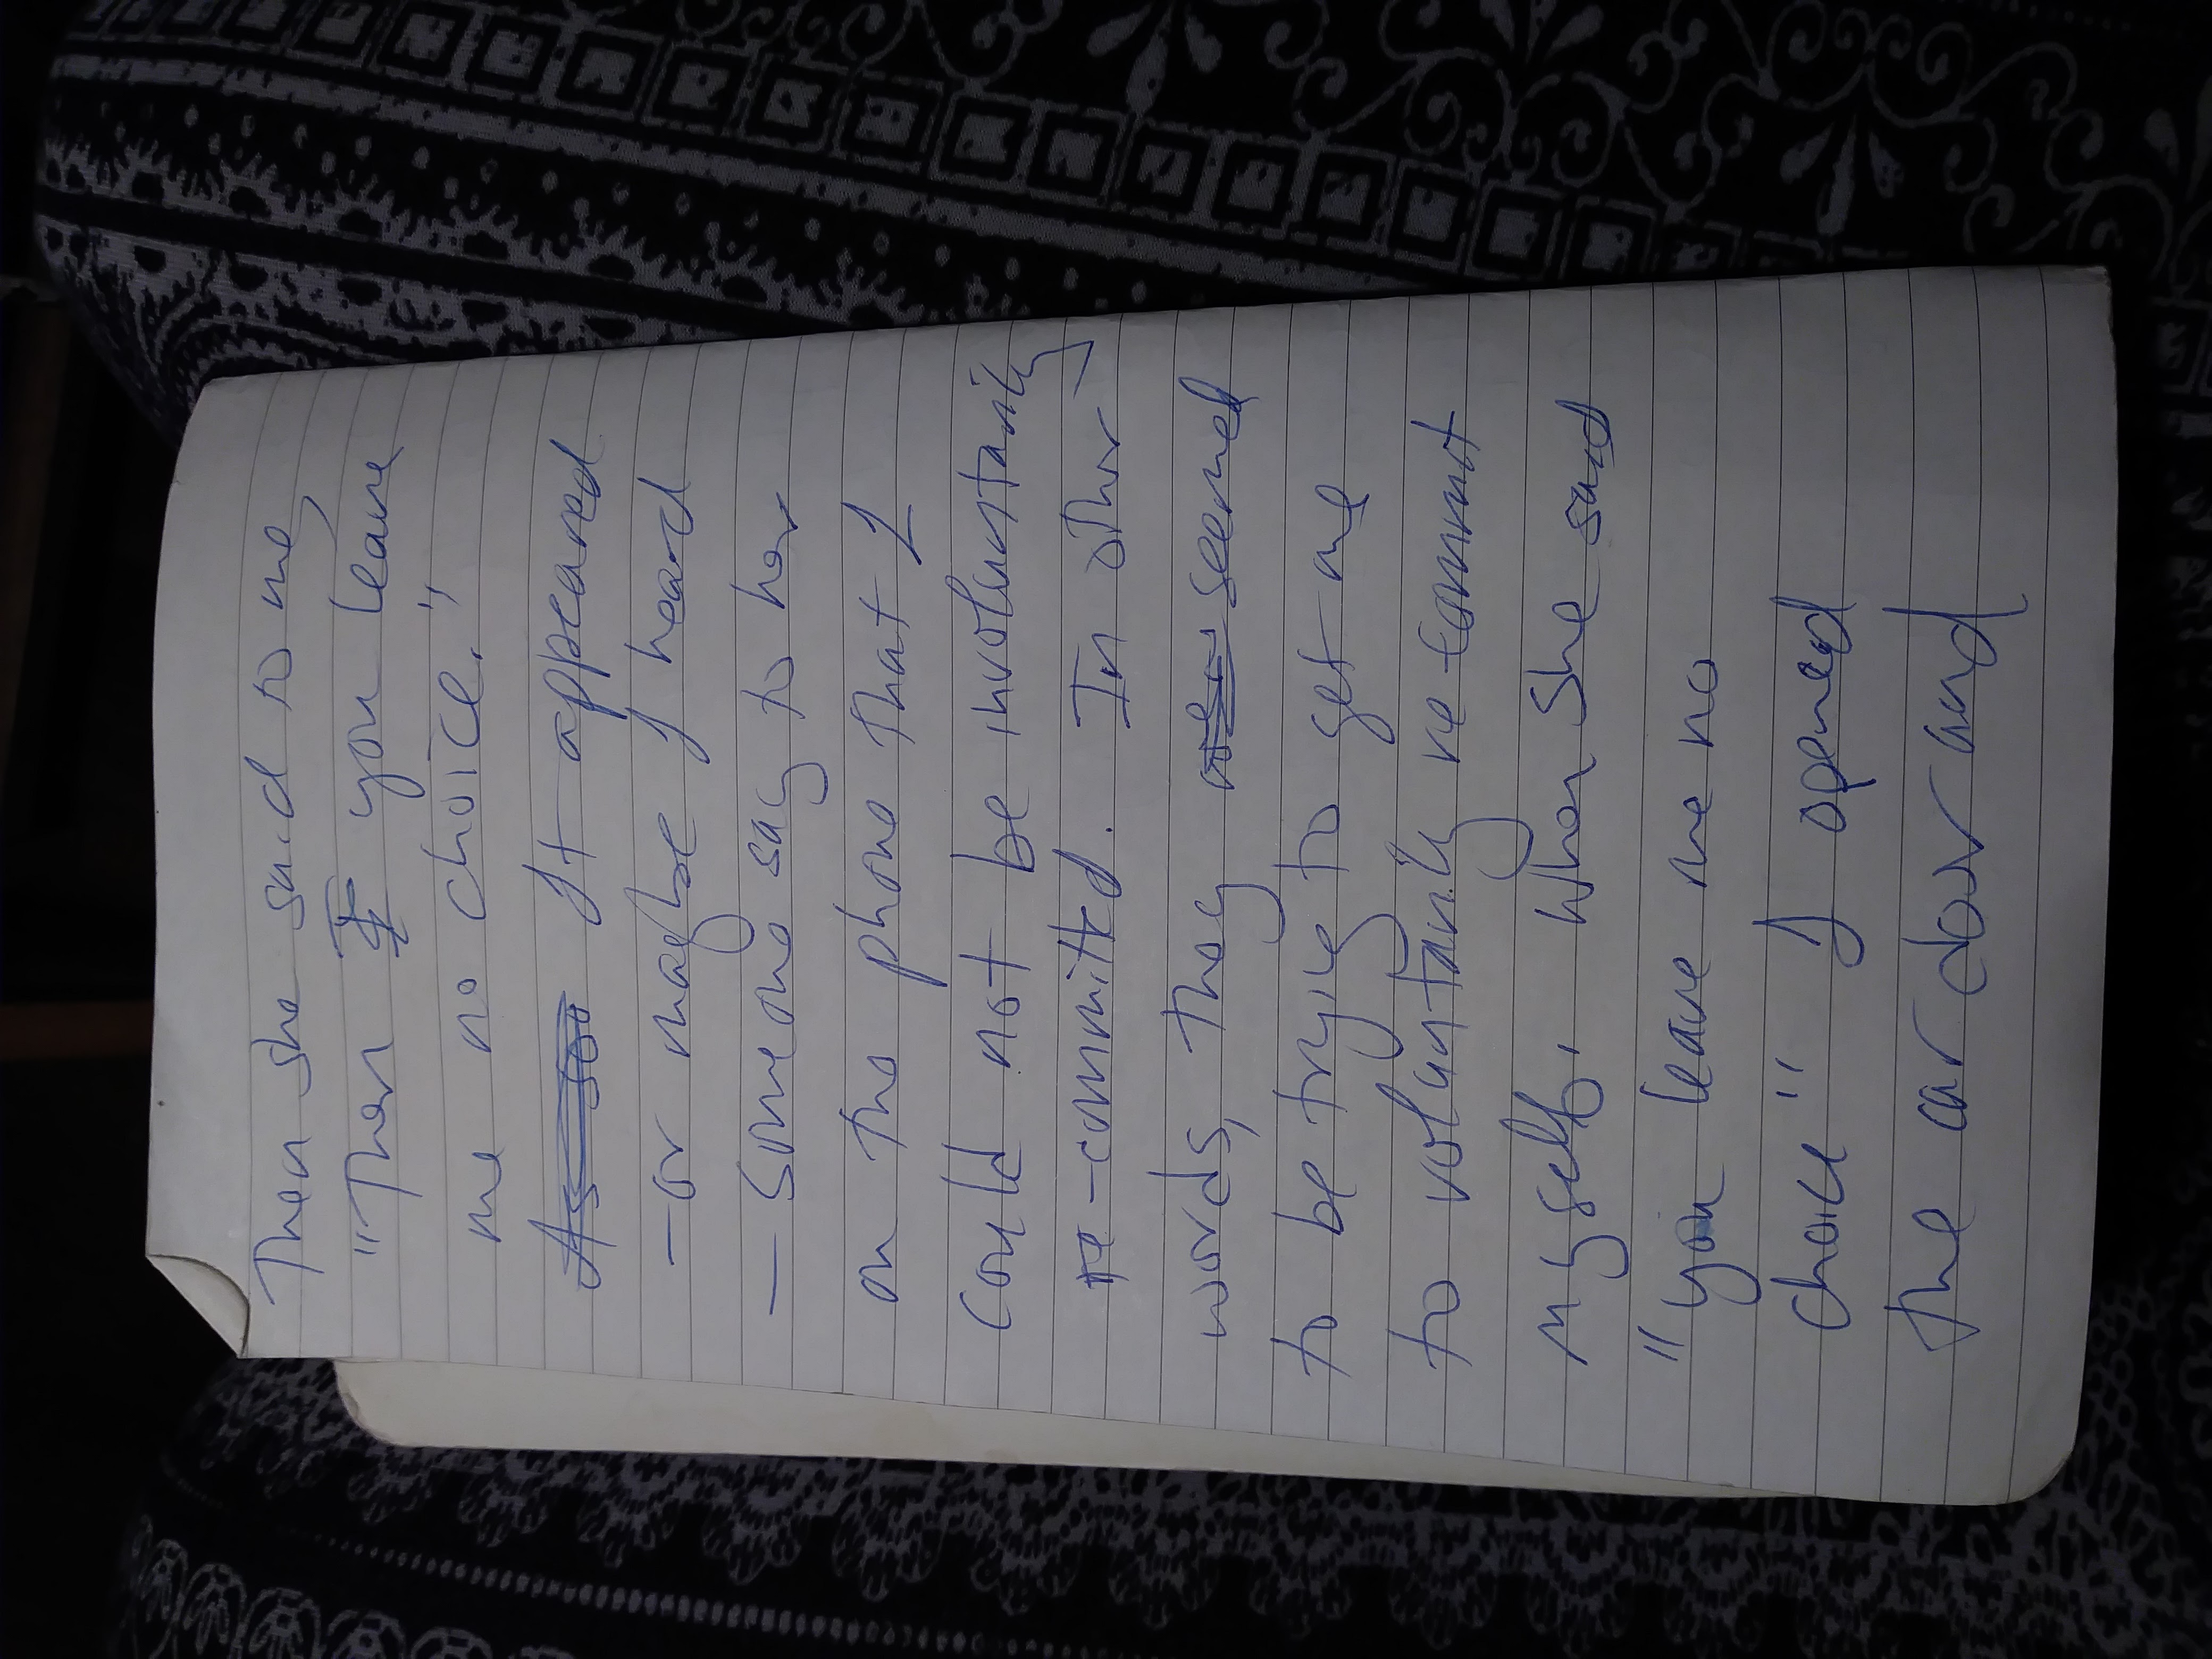 Then she said to me,
"Then you leave
me no choice."
It appeared
- or maybe I heard
- someone say to her
on the phone that I
could not be involuntarily
re-committed. In other
words, they seemed
to be trying to get me
to voluntarily re-commit
myself. When she said
"you leave me no
choice" I opened
the car door and